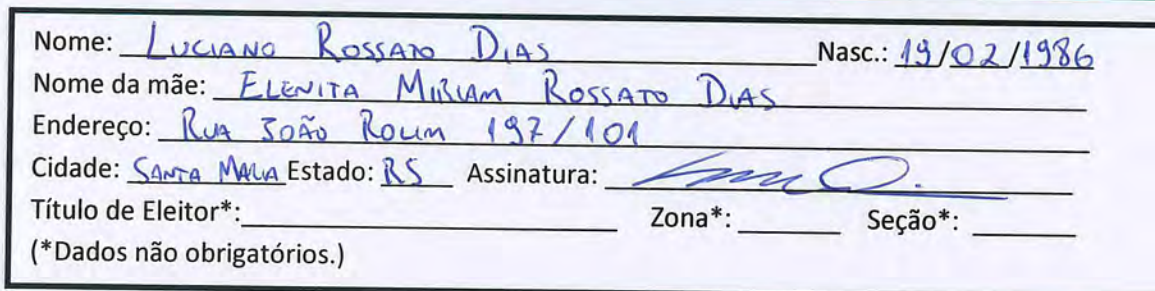 Nome: LUCIANO ROSSATO DIAS Nasc.: 19/02/1986
Nome da mãe: ELENITA MIRIAM ROSSATO DIAS
Endereço: RUA JOÃO ROLIM 197/101
Cidade: SANTA MARIA Estado: RS Assinatura:
Título de Eleitor*: Zona*: Seção*:
(*Dados não obrigatórios.)